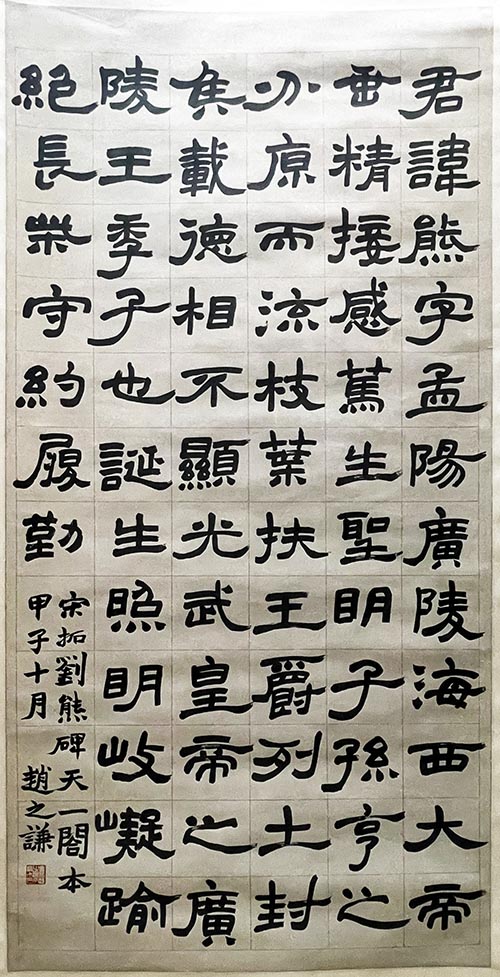 君諱熊字孟陽廣陵海西大帝
垂精接感篤生聖明子孫亨之
分原而流枝葉扶王爵列土封
侯載德相不顯光武皇帝之廣
陵王季子也誕生照明岐嶷踰
絕長榮守約履勤
宋拓劉熊碑天一閣本
甲子十月 趙之謙